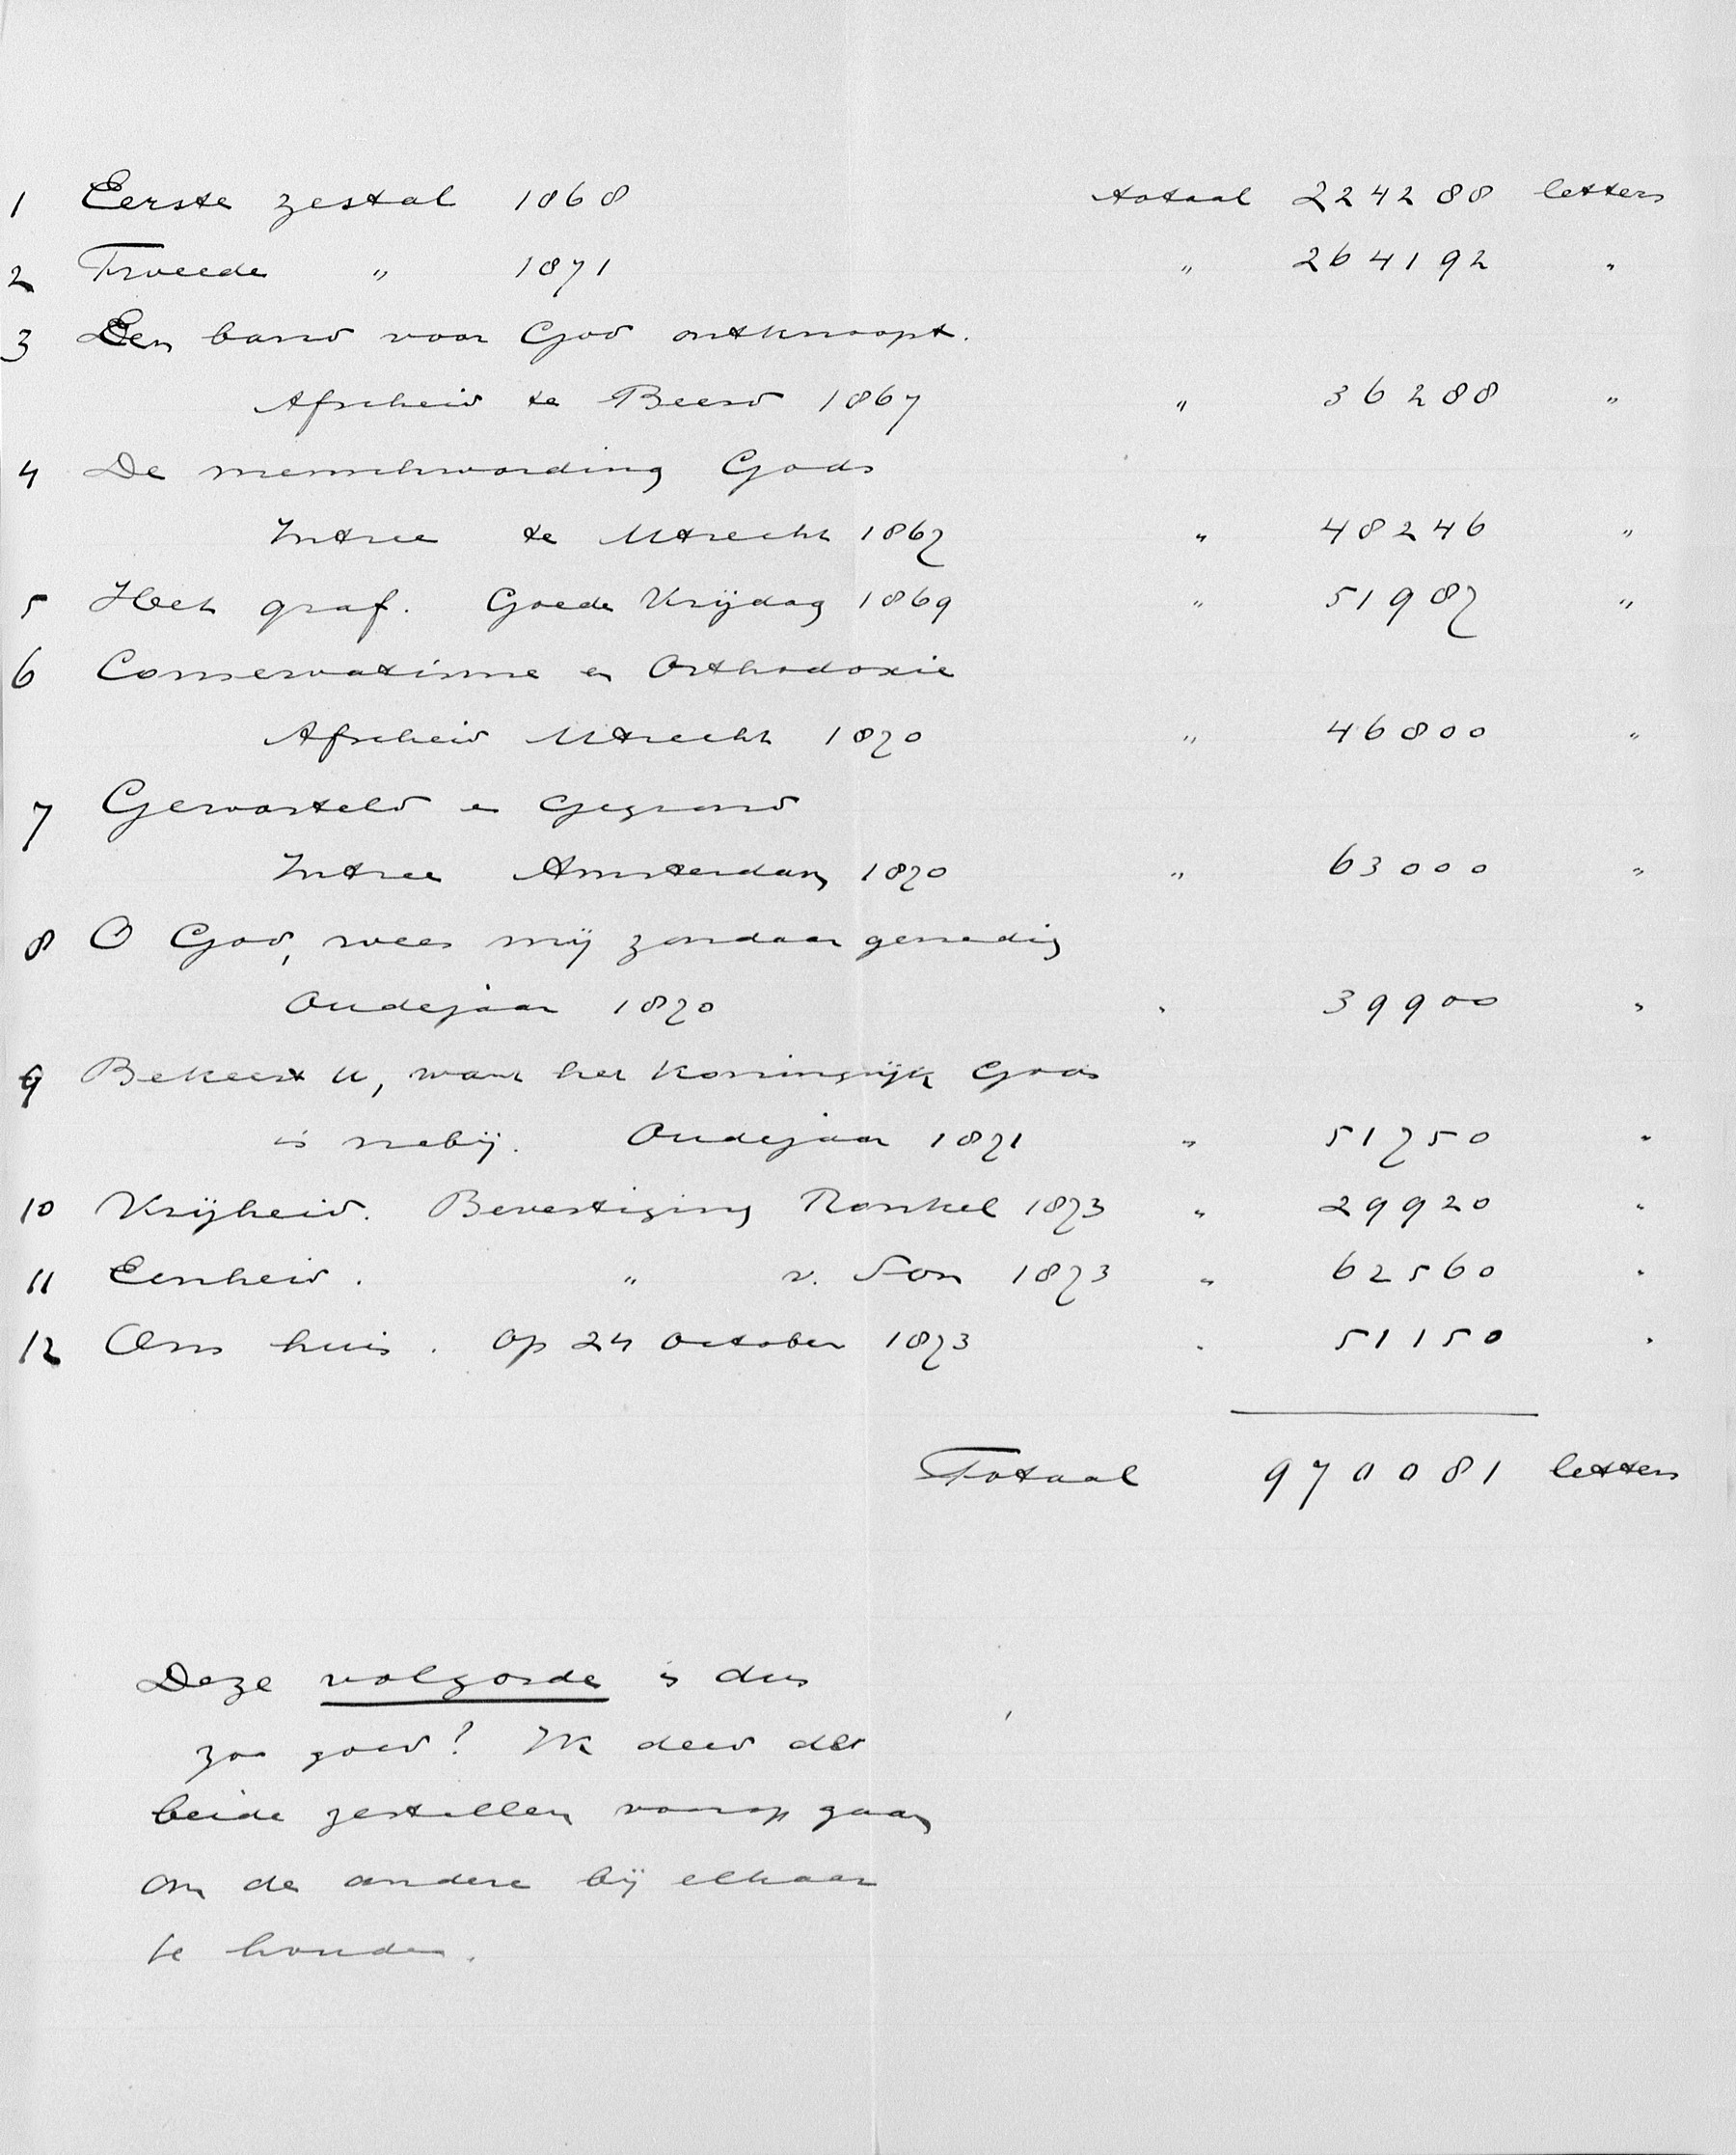 1 Eerste zestal 1868 totaal 224288 letters
2 Tweede " 1871 " 264192 "
3 Een band voor God ontknoopt.
Afscheid te Beesd 1867 " 36288 "
4 De menschwording Gods
Intree te Utrecht 1867 " 48246 "
5 Het graf. Goede Vrijdag 1869 " 51987 "
6 Conservatisme en Orthodoxie
Afscheid Utrecht 1870 " 46800 "
7 Geworteld en Gegrond
Intree Amsterdam 1870 " 63000 "
8 O God, wees mij zondaar genadig
Oudejaar 1870 " 39900 "
9 Bekeert U, want het Koningrijk Gods
is nabij. Oudejaar 1871 " 51750 "
10 Vrijheid. Bevestiging Ronkel 1873 " 29920 "
11 Eenheid. " v. Son 1873 " 62560 "
12 Ons huis. Op 24 October 1873 " 51150 "
Totaal 970081 letters
Deze volgorde is dus
zoo goed? Ik deed de
beide zestallen voorop gaan
om de andere bij elkaar
te houden.